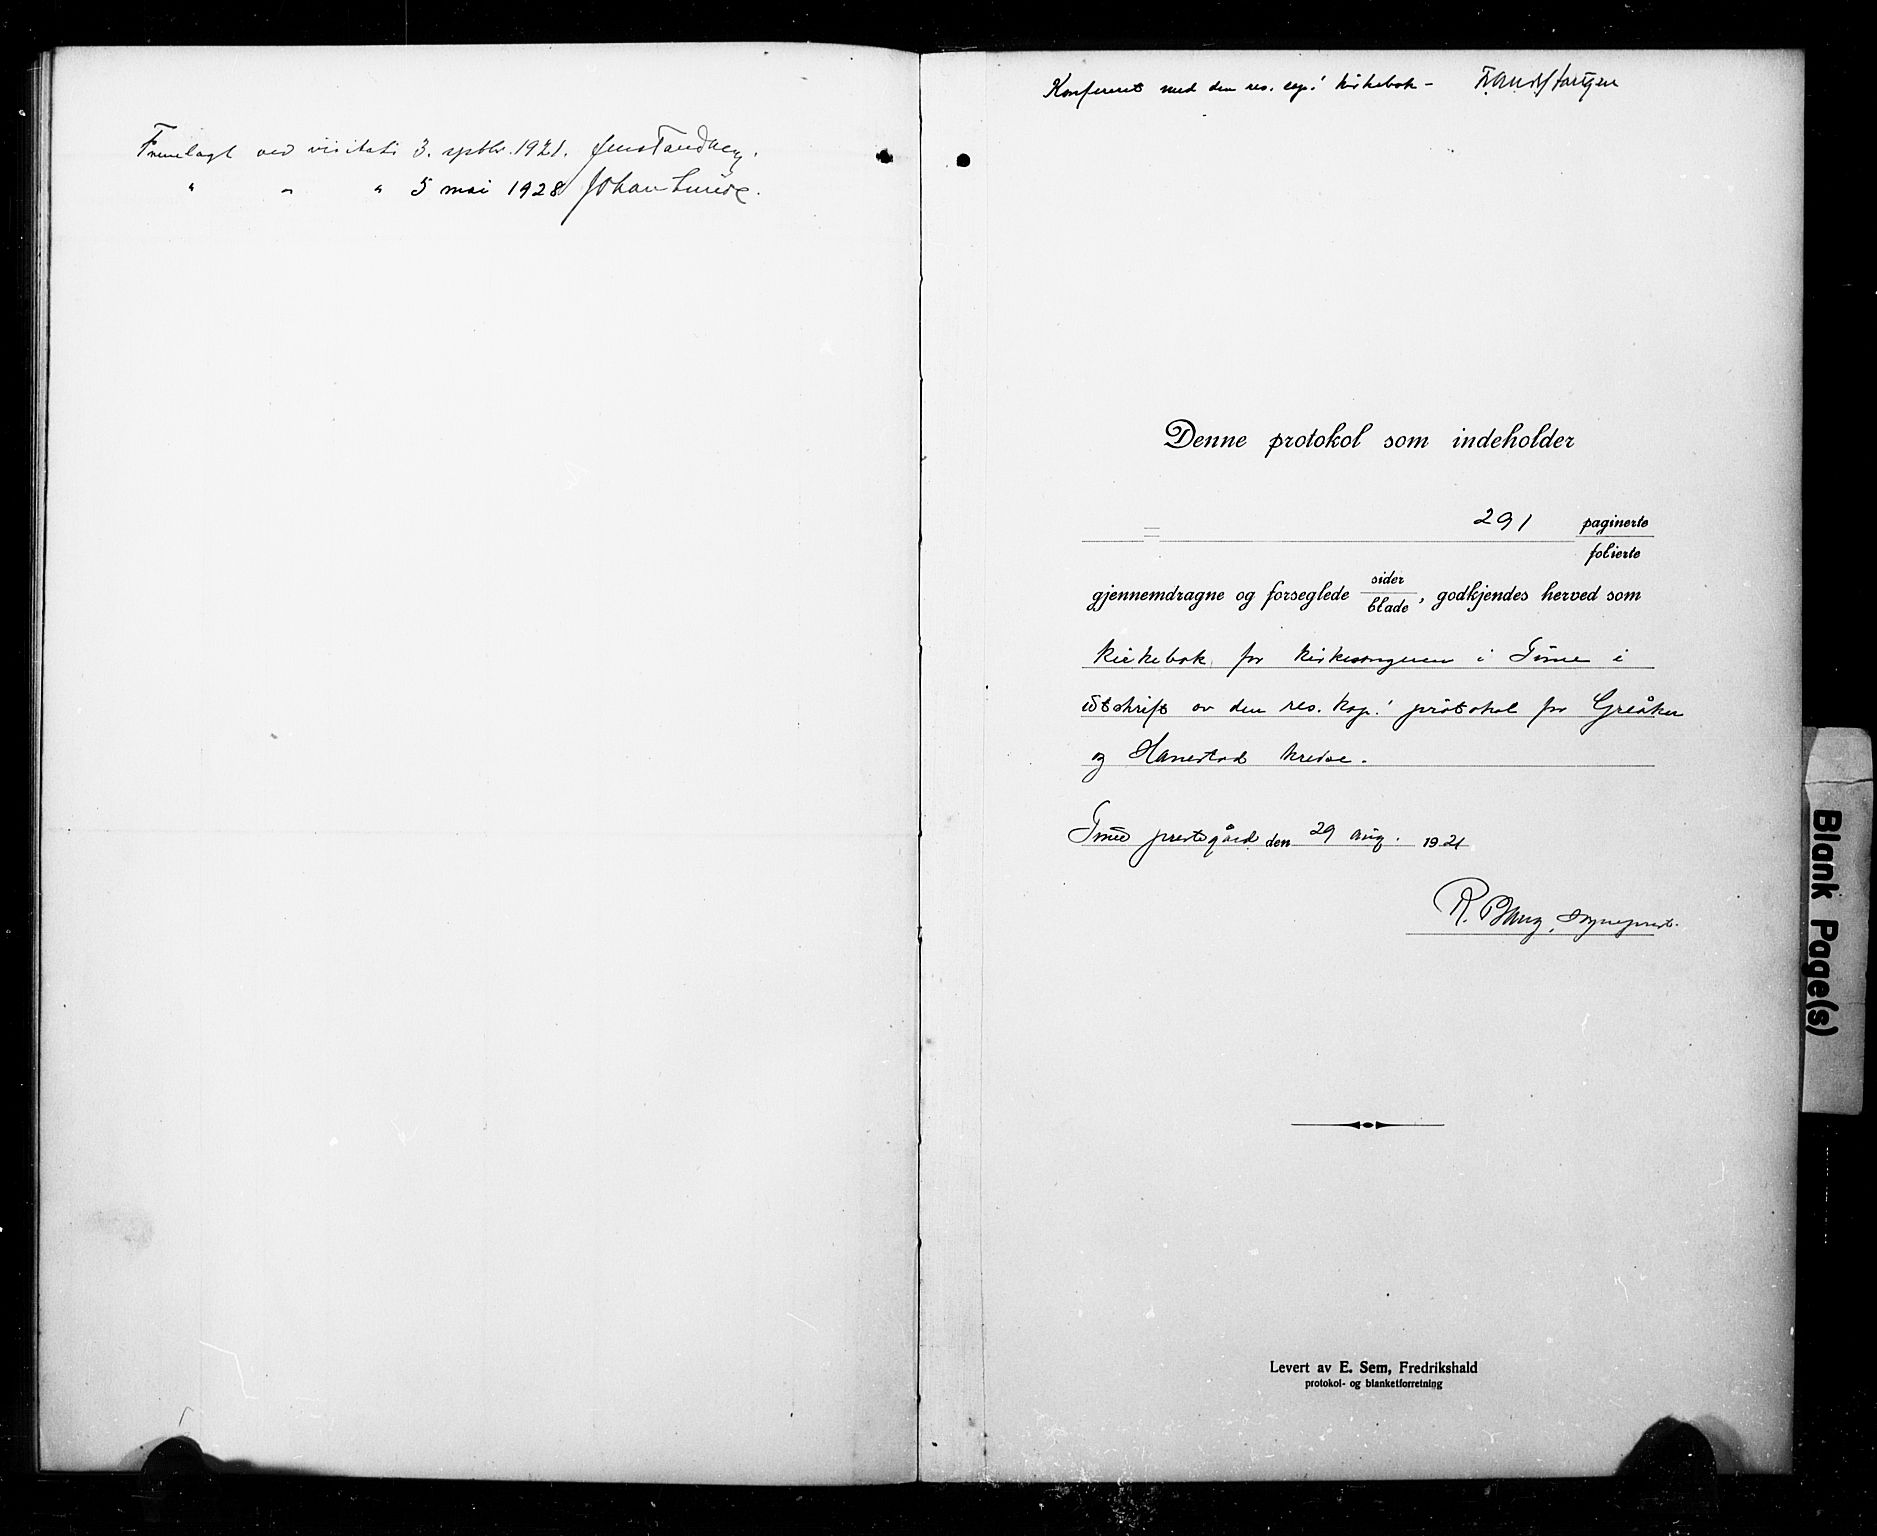 Fremlagt ved visitats 3. septbr. 1921. Jens Tandberg.
" " " 5 mai 1928 Johan Lunde.
Konferert med den res. cap.! kirkebok –
Denne protokol som indeholder
= 291 paginerte
folierte
gjennemdragne og forseglede sider
blade, godkjendes herved som
kirkebok for kirkesangeren i Tune i
utskrift av den res. kap.! protokol for Greåker
og Hanestad kredse.
Tune prestegård den 29 aug. 1921
R. Bang, sogneprest.
Levert av E. Sem, Fredrikshald
protokol- og blanketforretning
Blank Page(s)